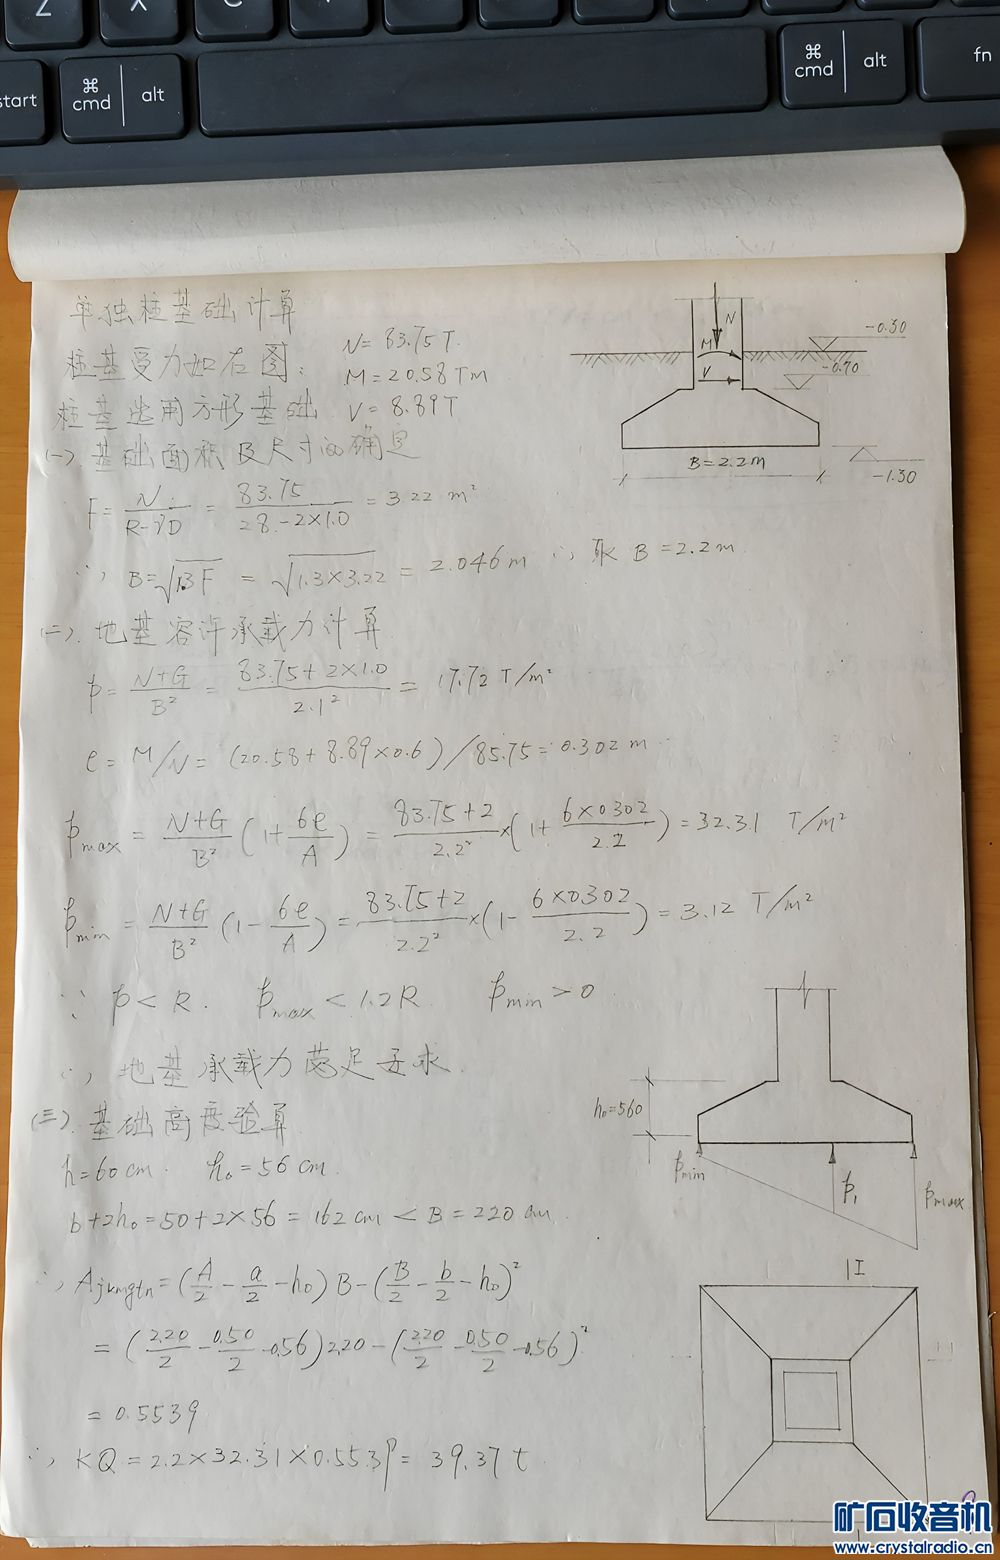 Z X C
start ⌘ cmd alt ⌘ cmd alt fn
单独柱基础计算
柱基受力如右图: N=83.75T.
M=20.58Tm
柱基选用方形基础 V=8.89T
(一). 基础面积及尺寸的确定
F = N/(R-γD) = 83.75/(28.-2×1.0) = 3.22 m²
∴ B=√(1.3F) = √(1.3×3.22) = 2.046m ∴ 取 B=2.2m
(二). 地基容许承载力计算
p = (N+G)/B² = (83.75+2×1.0)/2.1² = 17.72 T/m²
e = M/N = (20.58+8.89×0.6)/85.75=0.302m
pmax = (N+G)/B² (1+6e/A) = (83.75+2)/2.2² ×(1+6×0302/2.2) = 32.31 T/m²
pmin = (N+G)/B² (1-6e/A) = (83.75+2)/2.2² ×(1-6×0302/2.2) = 3.12 T/m²
∵ p<R. pmax<1.2R pmin>0
∴ 地基承载力满足要求.
(三). 基础高度验算
h=60cm. h₀=56cm.
b+2h₀=50+2×56=162cm<B=220cm.
∴ Ajkmgtn=(A/2-a/2-h₀)B-(B/2-b/2-h₀)²
=(2.20/2-0.50/2-0.56)2.20-(2.20/2-0.50/2-0.56)²
=0.5539
∴ KQ=2.2×32.31×0.5539=39.37t
N
M
V
-0.30
-0.70
B=2.2m
-1.30
h₀=560
pmin
p₁
pmax
I
矿石收音机
www.crystalradio.cn